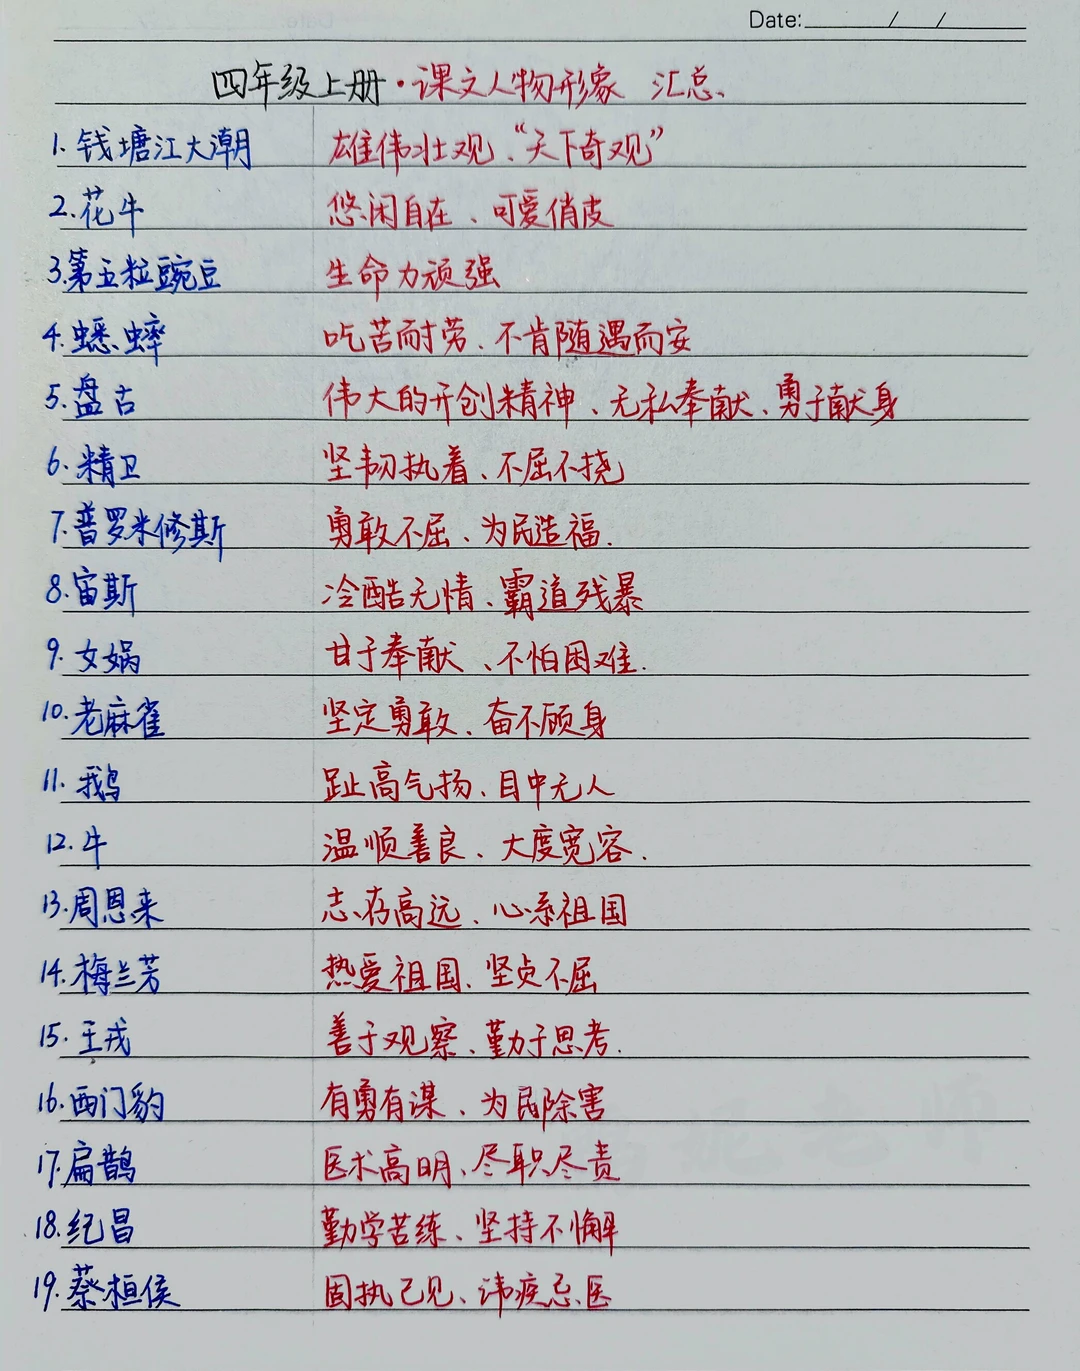 Date: / /
四年级上册·课文人物形象 汇总
1.钱塘江大潮 雄伟壮观、“天下奇观”
2.花牛 悠闲自在、可爱俏皮
3.第五粒豌豆 生命力顽强
4.蟋蟀 吃苦耐劳、不肯随遇而安
5.盘古 伟大的开创精神、无私奉献、勇于献身
6.精卫 坚韧执着、不屈不挠
7.普罗米修斯 勇敢不屈、为民造福.
8.宙斯 冷酷无情、霸道残暴
9.女娲 甘于奉献、不怕困难.
10.老麻雀 坚定勇敢、奋不顾身
11.鹅 趾高气扬、目中无人
12.牛 温顺善良、大度宽容.
13.周恩来 志存高远、心系祖国
14.梅兰芳 热爱祖国、坚贞不屈
15.王戎 善于观察、勤于思考.
16.西门豹 有勇有谋、为民除害
17.扁鹊 医术高明、尽职尽责
18.纪昌 勤学苦练、坚持不懈
19.蔡桓侯 固执己见、讳疾忌医